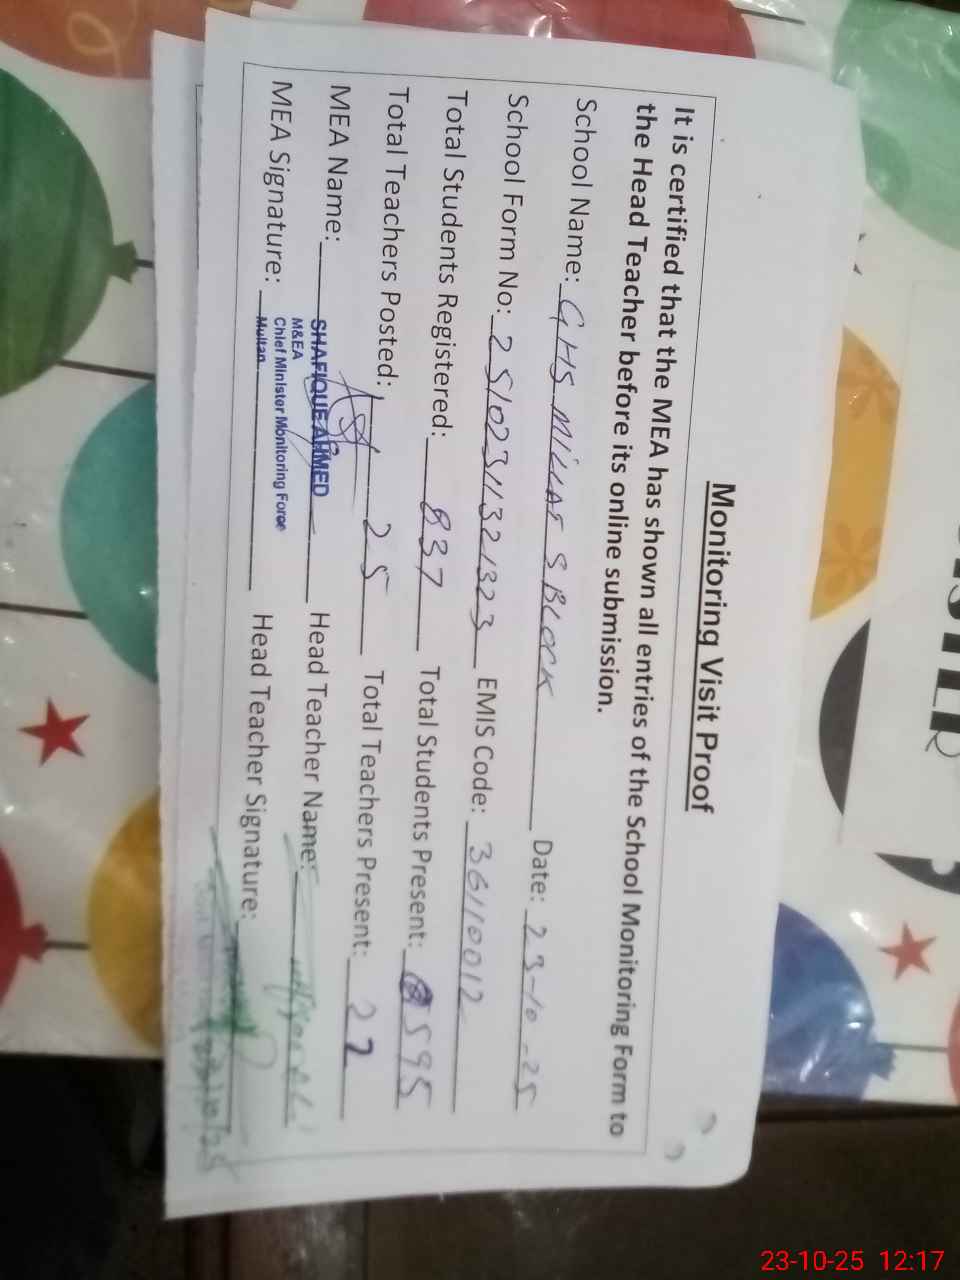 Monitoring Visit Proof
It is certified that the MEA has shown all entries of the School Monitoring Form to
the Head Teacher before its online submission.
School Name: GHS MILLAT S BLOCK Date: 23-10-25
School Form No: 25102311321323 EMIS Code: 36110012
Total Students Registered: 837 Total Students Present: 595
Total Teachers Posted: 25 Total Teachers Present: 22
MEA Name: SHAFIQUE AHMED Head Teacher Name:
M&EA
MEA Signature: Chief Minister Monitoring Force Head Teacher Signature:
Multan.
23/10/25
23-10-25 12:17